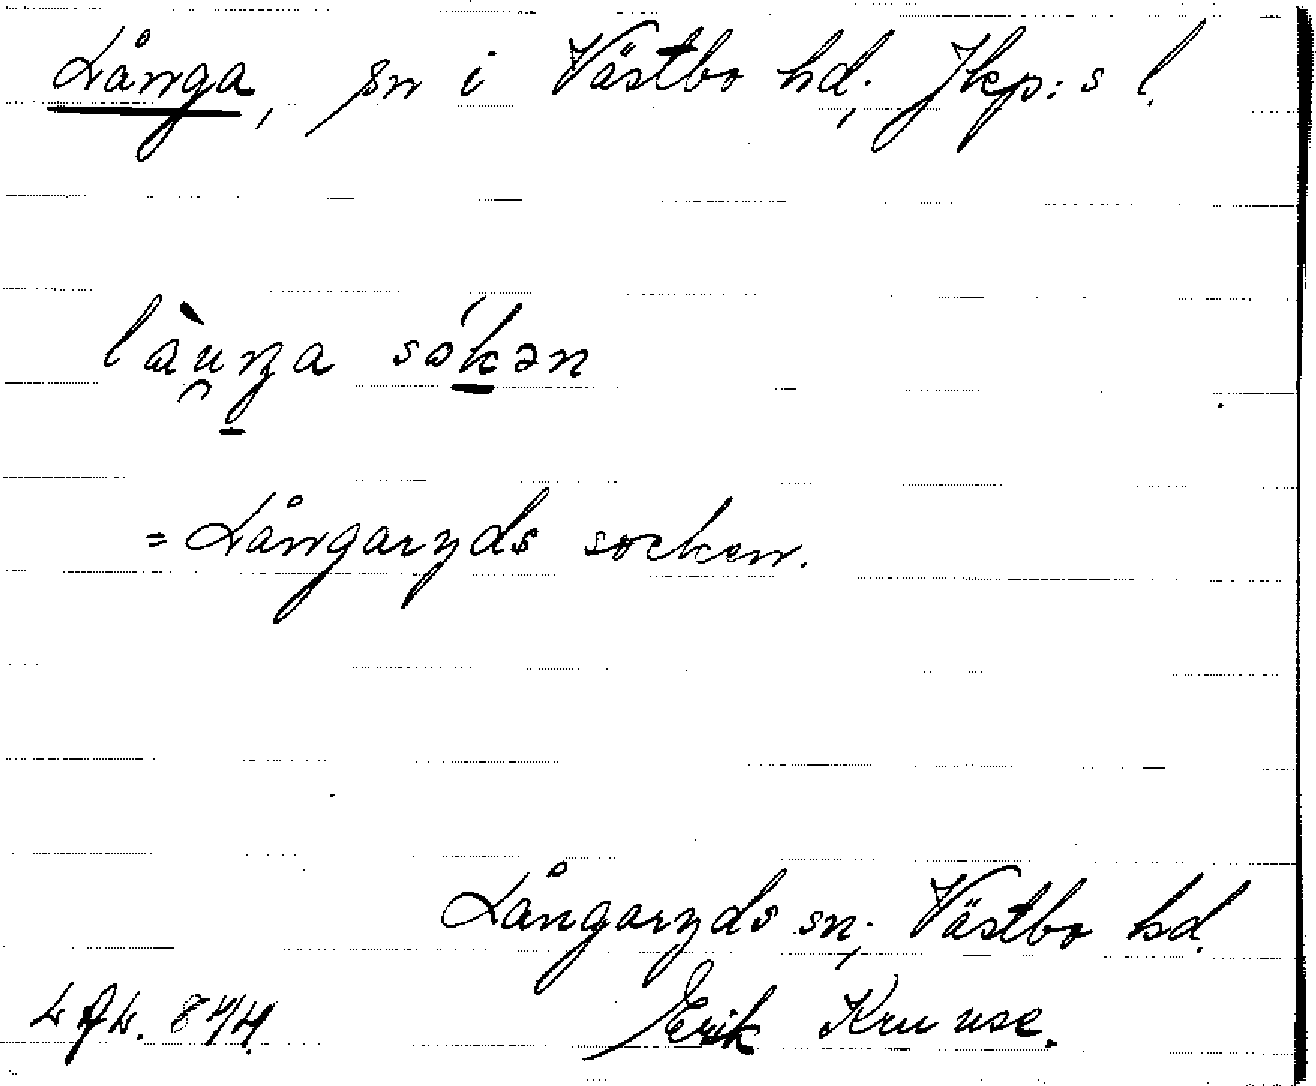 Långa, sn i Västbo hd; Jkp:s l.
làu̯ŋa sókən
= Långaryds socken.
Långaryds sn; Västbo hd.
Erik Kruuse.